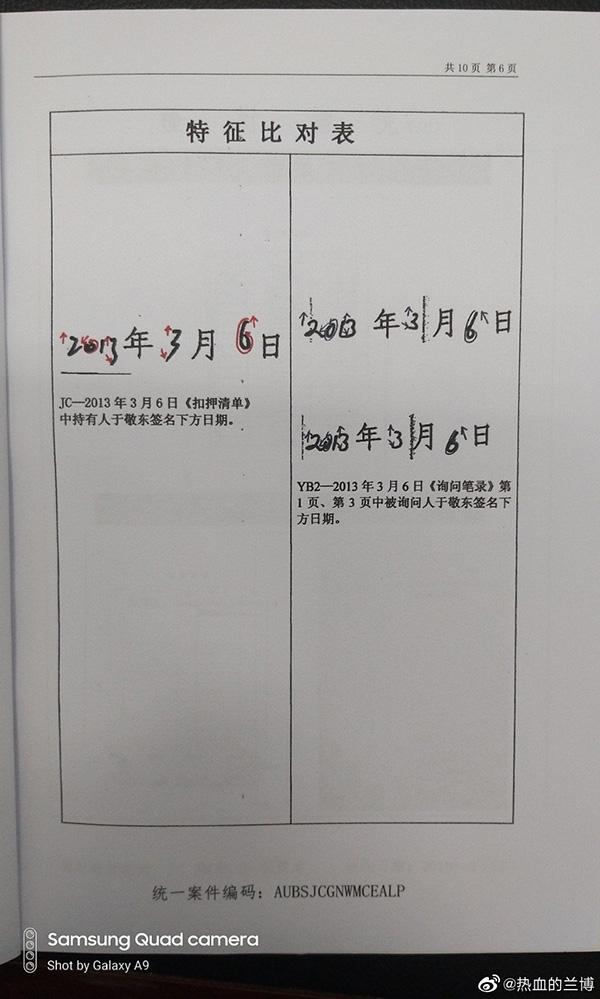 共10页 第6页
特征比对表
2013年3月6日
JC—2013年3月6日《扣押清单》
中持有人于敬东签名下方日期。
2013年3月6日
2013年3月6日
YB2—2013年3月6日《询问笔录》第
1页、第3页中被询问人于敬东签名下
方日期。
统一案件编码：AUBSJCGNWMCEALP
Samsung Quad camera
Shot by Galaxy A9
@热血的兰博